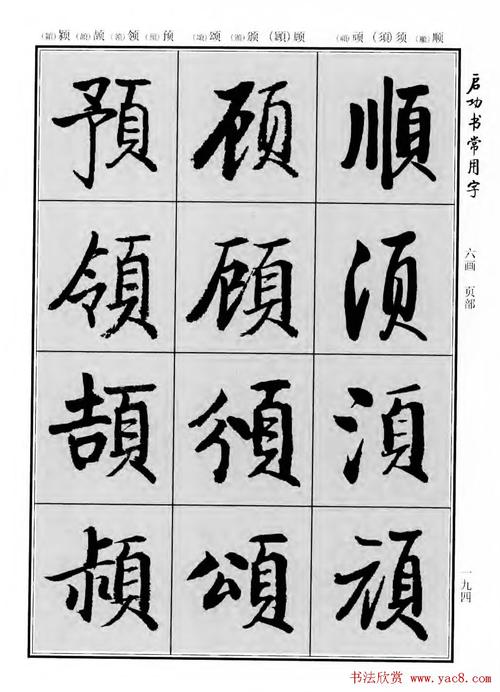 (穎)颖(頡)颉(領)领(預)预 (頌)颂(頒)颁(顧)顾 (頑)顽(須)须(順)顺
启功书常用字
六画 页部
一九四
順須須頑
顾顾頒頌
預領頡穎
书法欣赏 www.yac8.com